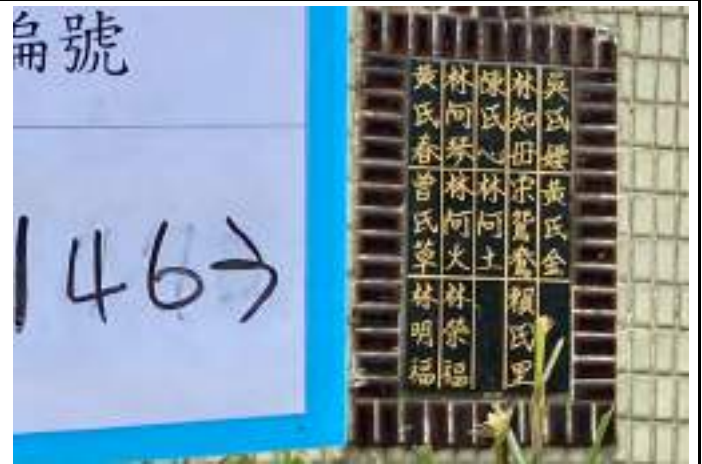 編號
146→
吳氏嫂 黃氏金
林知母 宋鴛鴦 賴氏里
陳氏心 林阿土
林阿琴 林阿火 林榮福
黃氏春 曾氏草 林明福